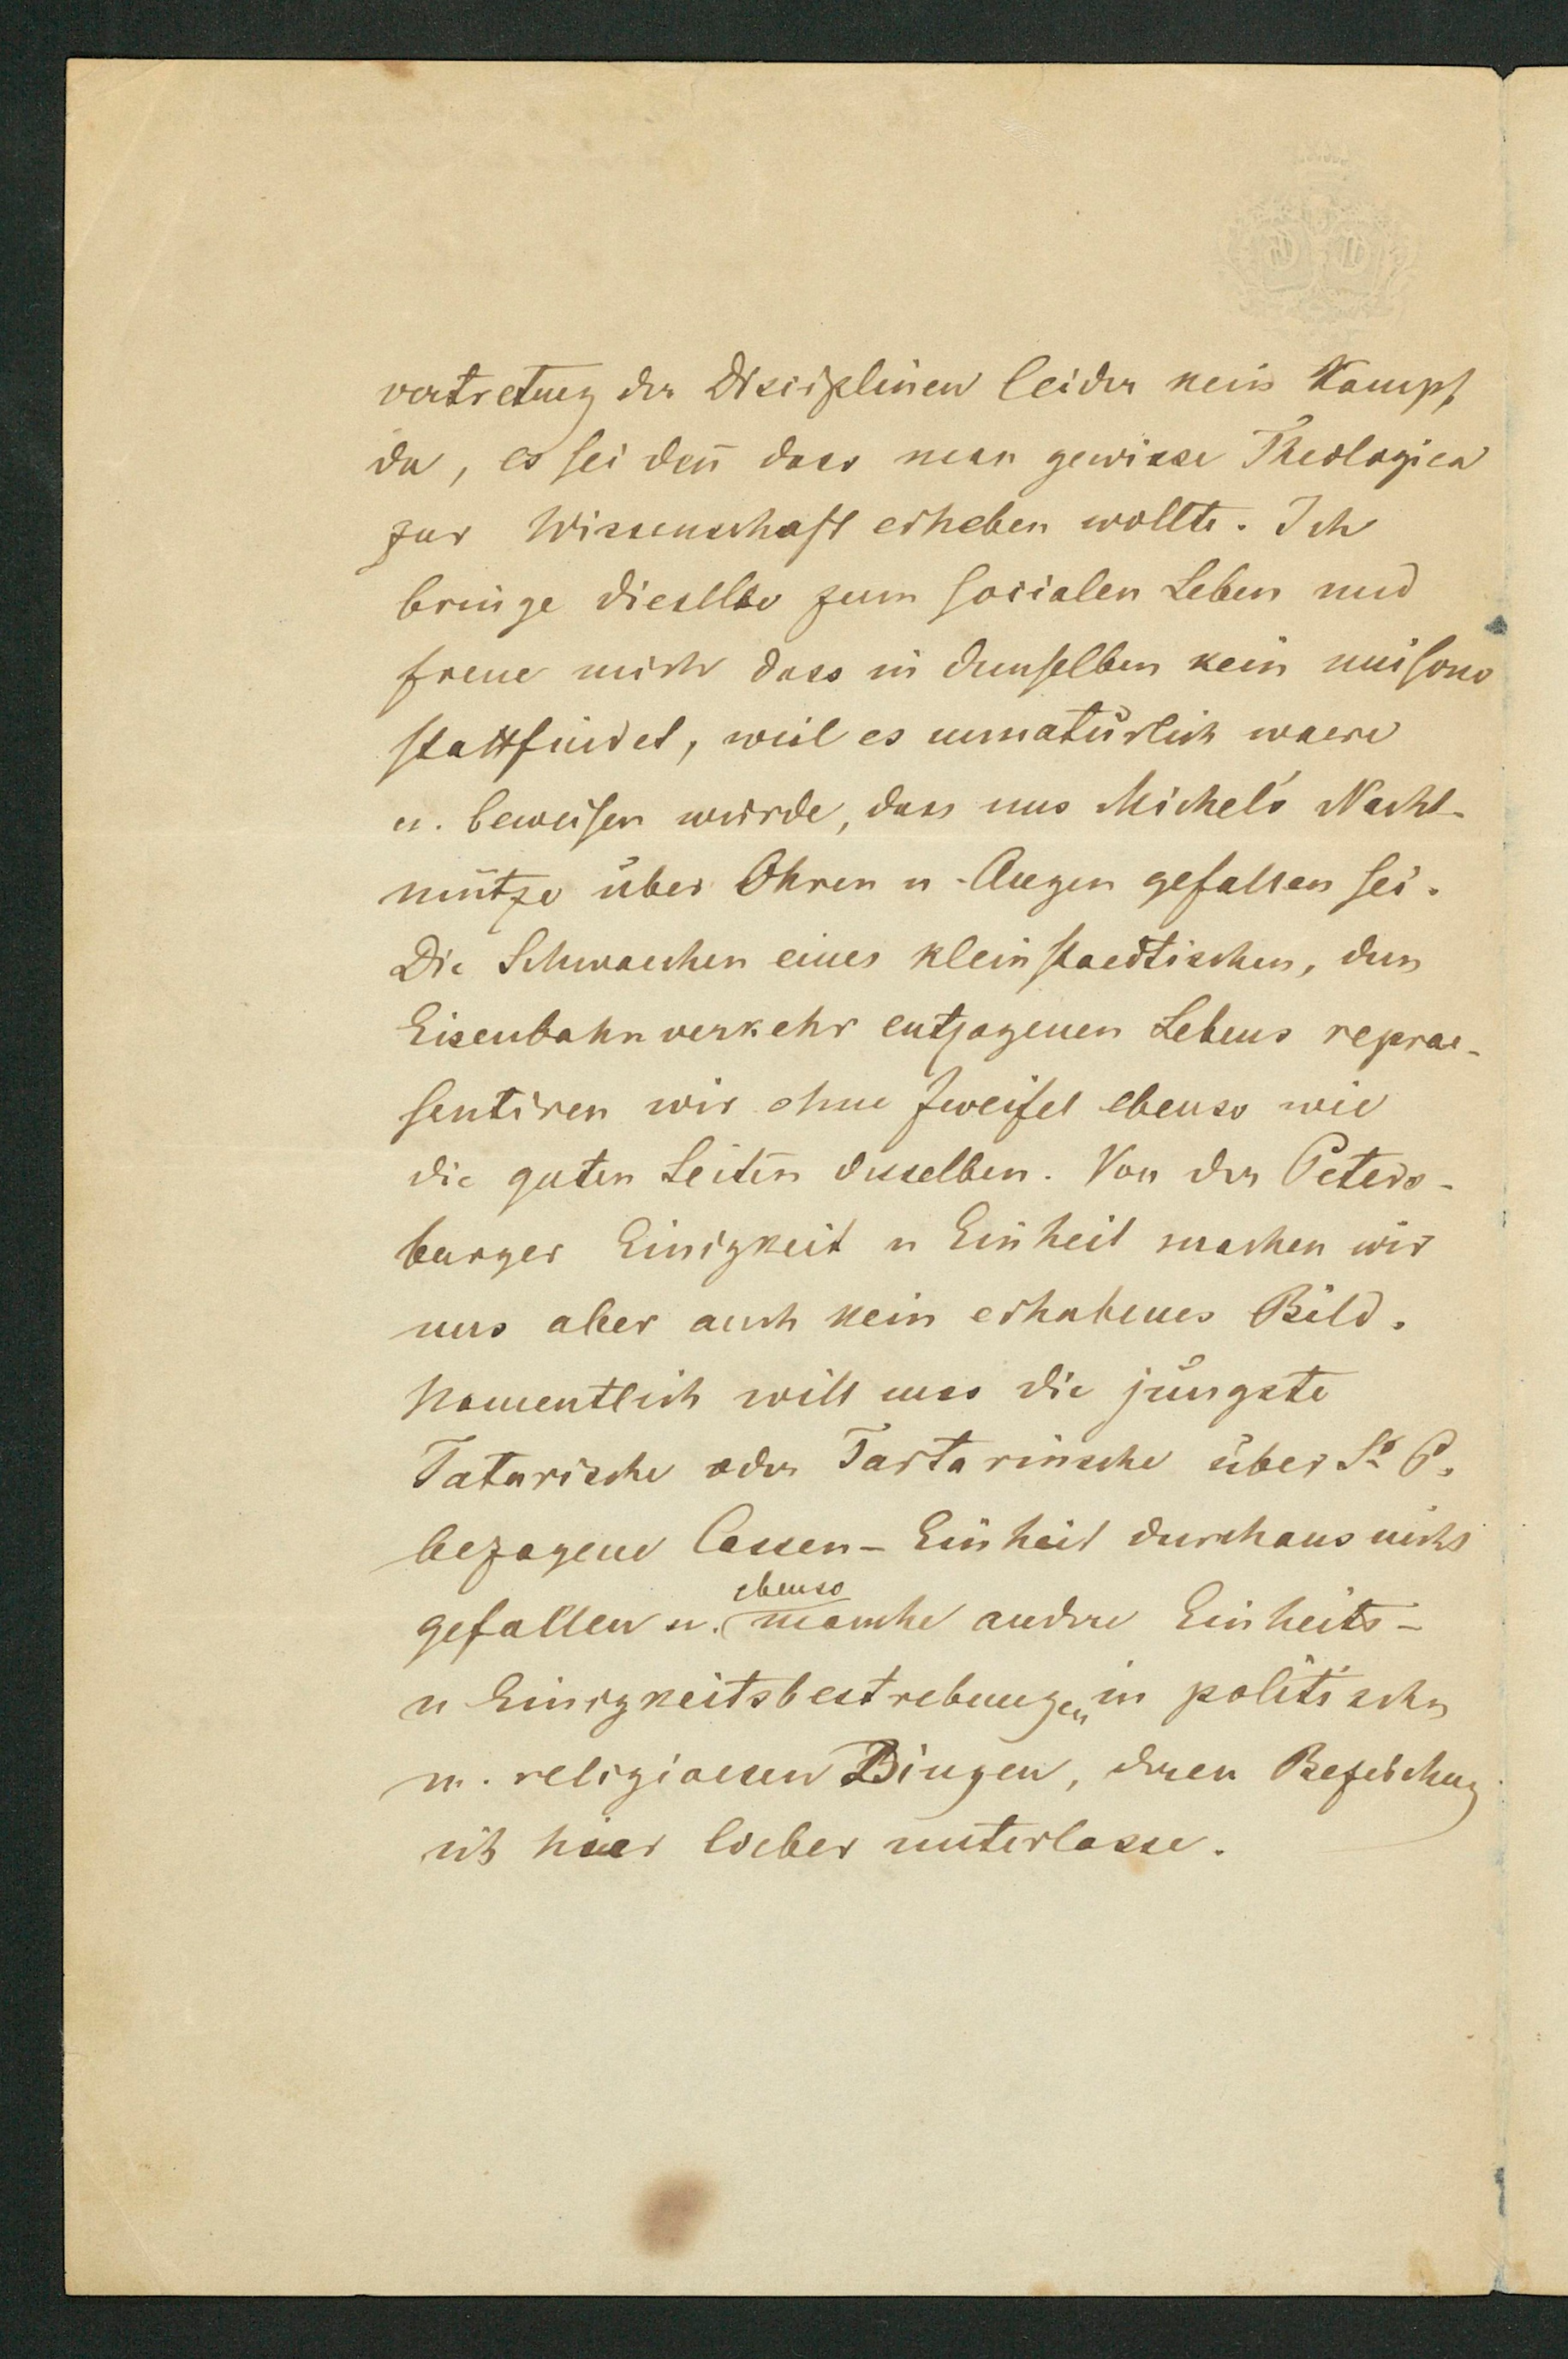 vertretung der Disciplinen leider kein Kampf
da, es sei deñ dass man gewisse Theologica
zur Wissenschaft erheben wollte. Ich
bringe dieselbe zum socialen Leben und
freue mich dass in demselben kein unisono
stattfindet, weil es unnatürlich waere
u. beweisen würde, dass uns Michel's Nacht-
mütze über Ohren u Augen gefallen sei.
Die Schwaechen eines kleinstaedtischen, dem
Eisenbahnverkehr entzogenen Lebens reprae-
sentiren wir ohne Zweifel ebenso wie
die guten Seiten desselben. Von der Peters-
burger Einigkeit u Einheit machen wir
uns aber auch kein erhabenes Bild.
Namentlich will uns die jüngste
Tatarische oder Tartarinsche über St P.
bezogene Cassen-Einheit durchaus nicht
gefallen u. ebenso manche andere Einheits-
u Einigkeitsbestrebungen in politischen
u. religioesen Dingen, deren Bezeichnung
ich hier lieber unterlasse.